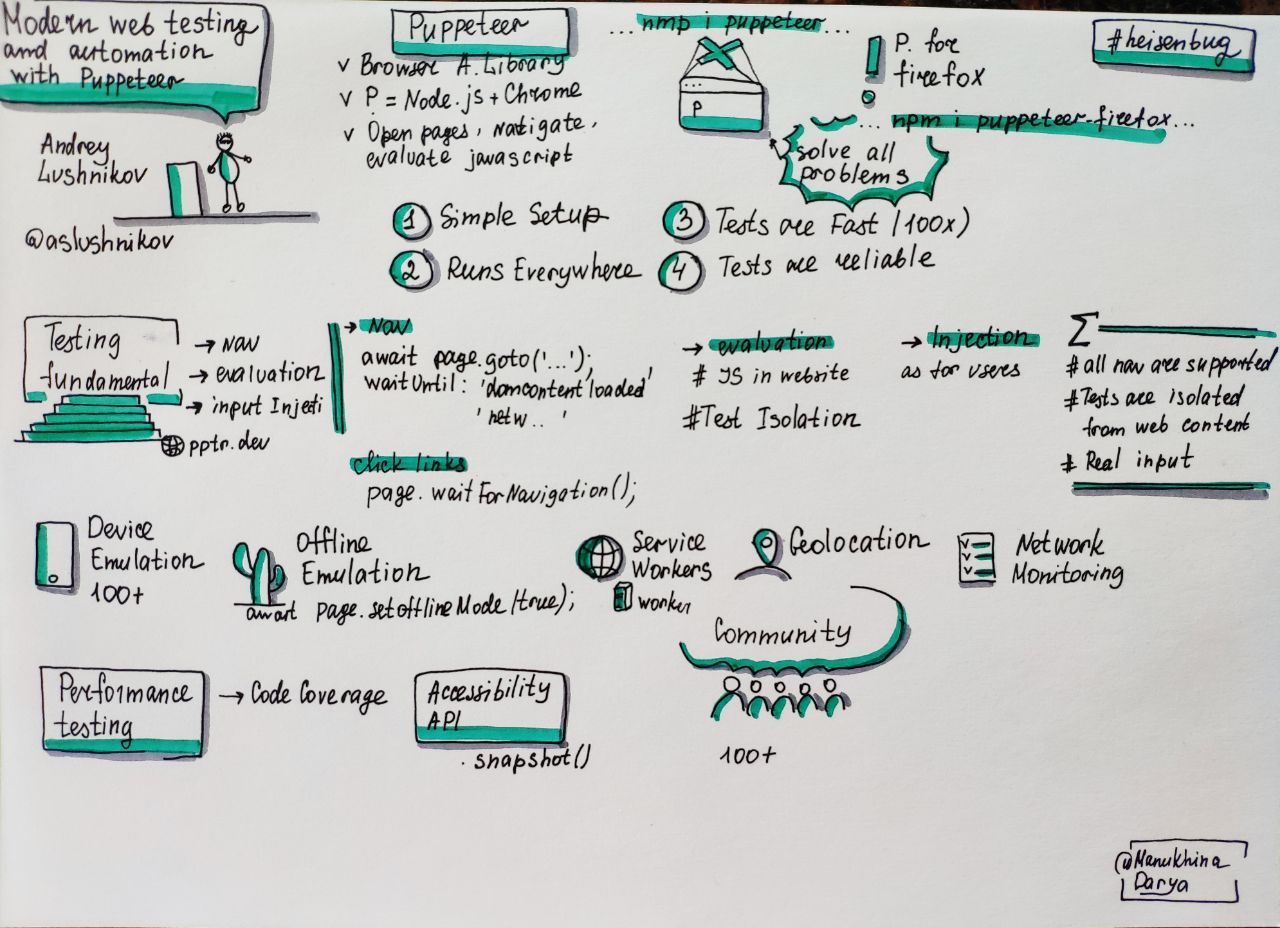 Modern web testing
and automation
with Puppeteer
Andrey
Lushnikov
@aslushnikov
Puppeteer
v Browser A. Library
v P = Node.js + Chrome
v Open pages, natigate,
evaluate javascript
...nmp i puppeteer...
P
! P. for
firefox
... npm i puppeteer-firefox...
solve all
problems
#heisenbug
1 Simple Setup
2 Runs Everywhere
3 Tests are Fast (100x)
4 Tests are reliable
Testing
fundamental
→ nav
→ evaluation
→ input Injecti
pptr.dev
→ Nav
await page.goto('...');
waitUntil: 'domcontentloaded'
'netw..'
click links
page.waitForNavigation();
→ evaluation
# JS in website
#Test Isolation
→ Injection
as for users
Σ
# all nav are supported
#Tests are isolated
from web content
# Real input
Device
Emulation
100+
Offline
Emulation
await page.setofflineMode(true);
Service
Workers
worker
Geolocation
Network
Monitoring
Performance
testing
→ Code Coverage
Accessibility
API
. snapshot()
Community
100+
@Manukhina
Darya